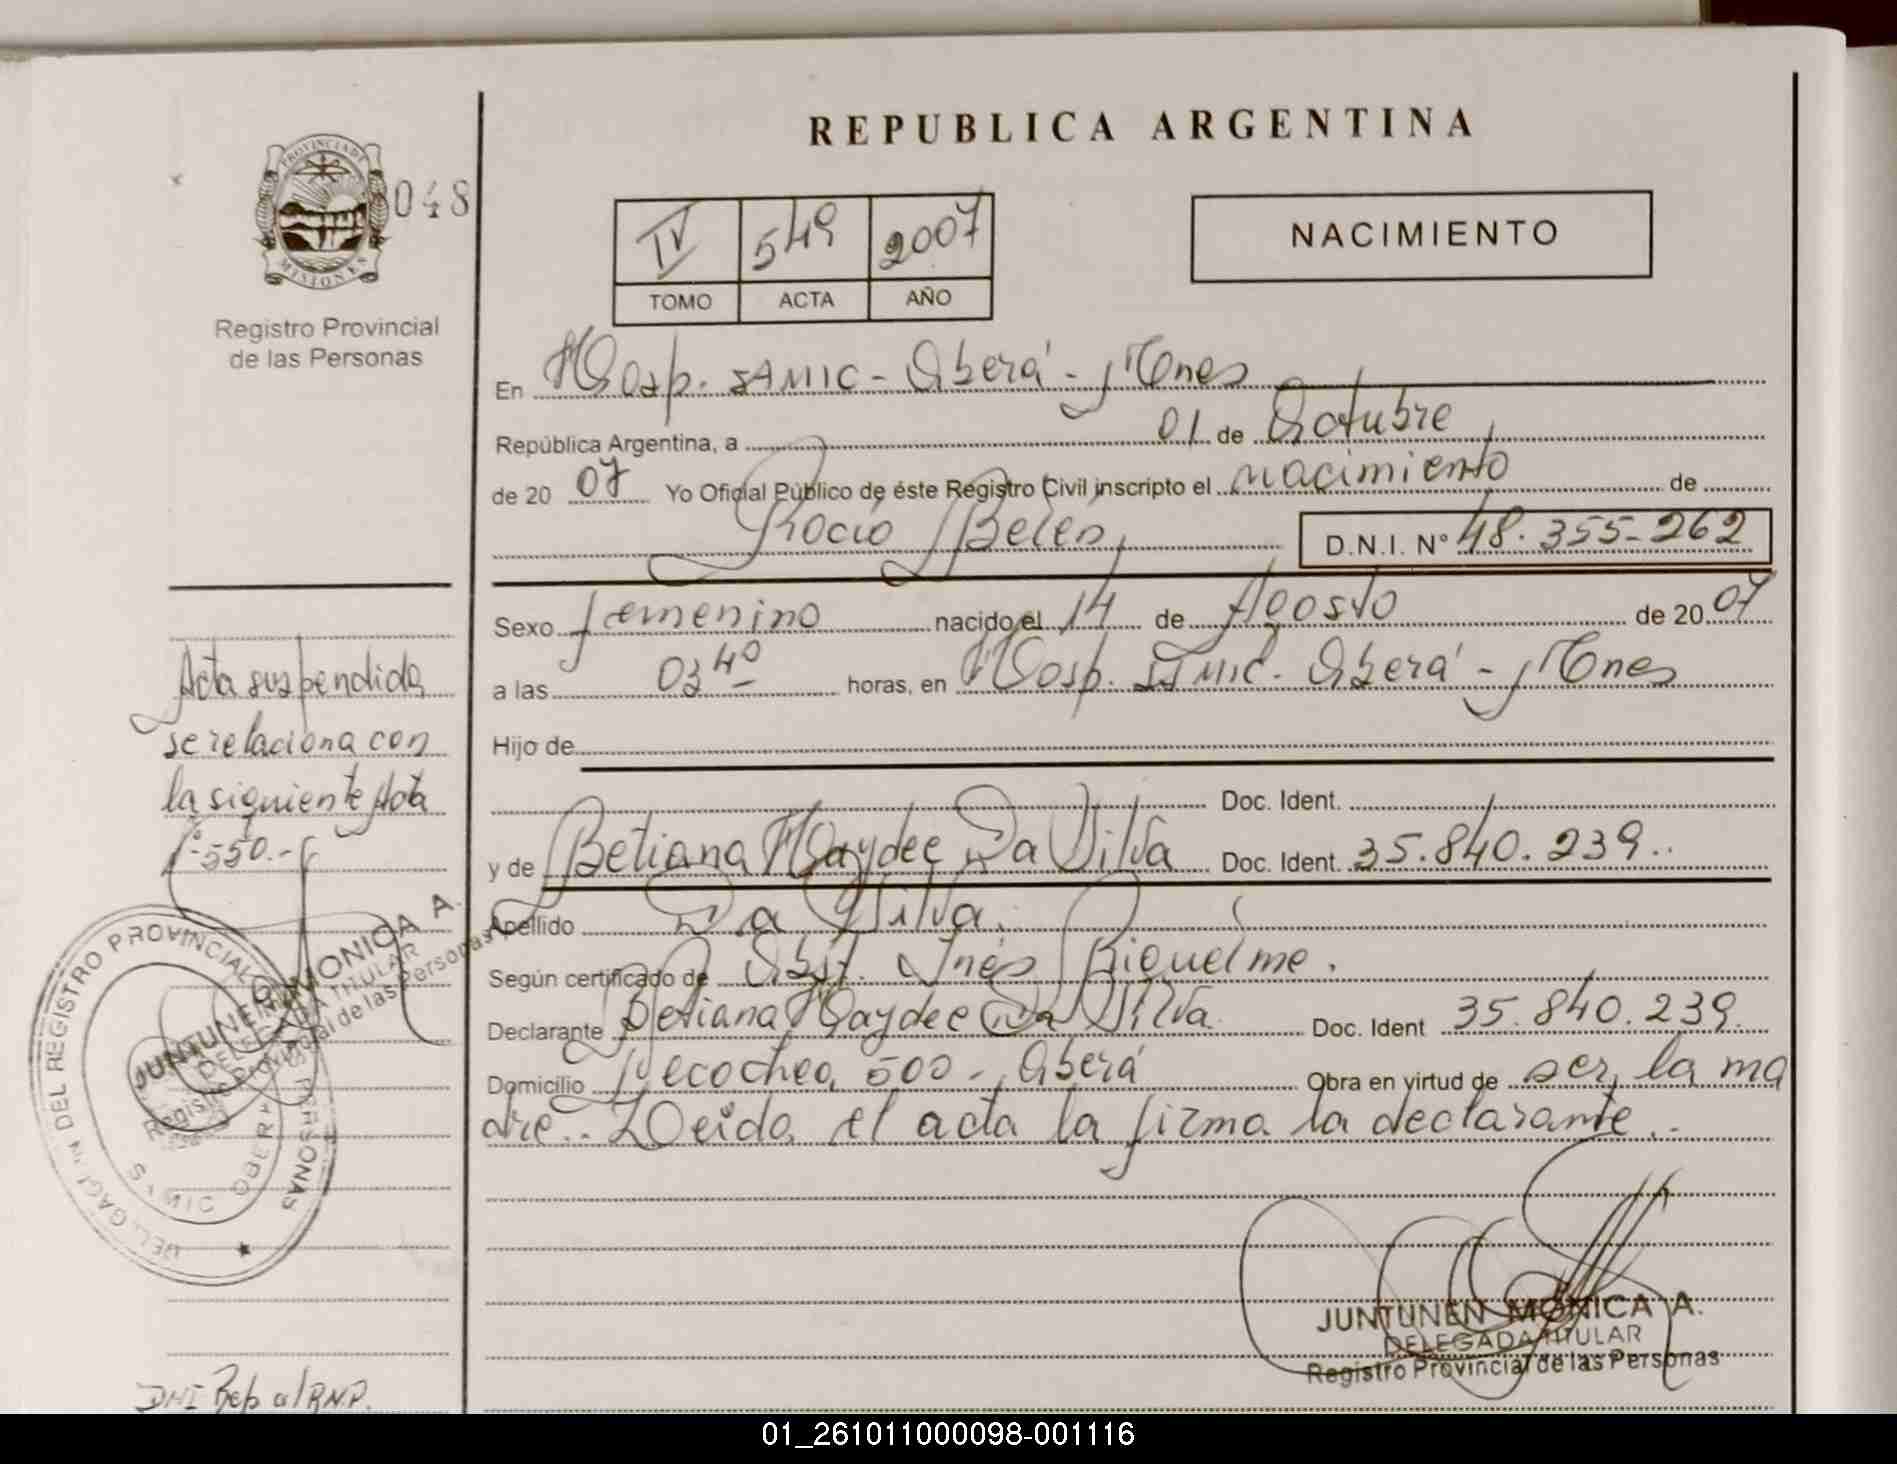 REPUBLICA ARGENTINA
PROVINCIA DE
MISIONES
048
Registro Provincial
de las Personas
IV 549 2007
TOMO ACTA AÑO
NACIMIENTO
En Hosp. SAMIC - Oberá - Mnes
República Argentina, a 01 de Octubre
de 20 07 Yo Oficial Público de éste Registro Civil inscripto el nacimiento de
Rocio Belén
D.N.I. N° 48.355-262
Sexo femenino nacido el 14 de Agosto de 20 07
a las 03 40 horas, en Hosp. SAMIC - Oberá - Mnes
Hijo de
Doc. Ident.
y de Betiana Haydee Da Silva Doc. Ident. 35.840.239..
Apellido Da Silva.
Según certificado de Obst. Inés Riquelme.
Declarante Betiana Haydee Da Silva Doc. Ident 35.840.239.
Domicilio Necochea 500 - Oberá Obra en virtud de ser la ma
dre.. Leida el acta la firma la declarante..
Acta suspendida
se relaciona con
la siguiente Acta
N°-550.-
JUNTUNEN MONICA A.
DELEGADA TITULAR
Registro Provincial de las Personas
DEL REGISTRO PROVINCIAL DE LAS PERSONAS
SAMIC OBERA
JUNTUNEN MONICA A.
DELEGADA TITULAR
Registro Provincial de las Personas
DNI Rep al RNP.
01_261011000098-001116